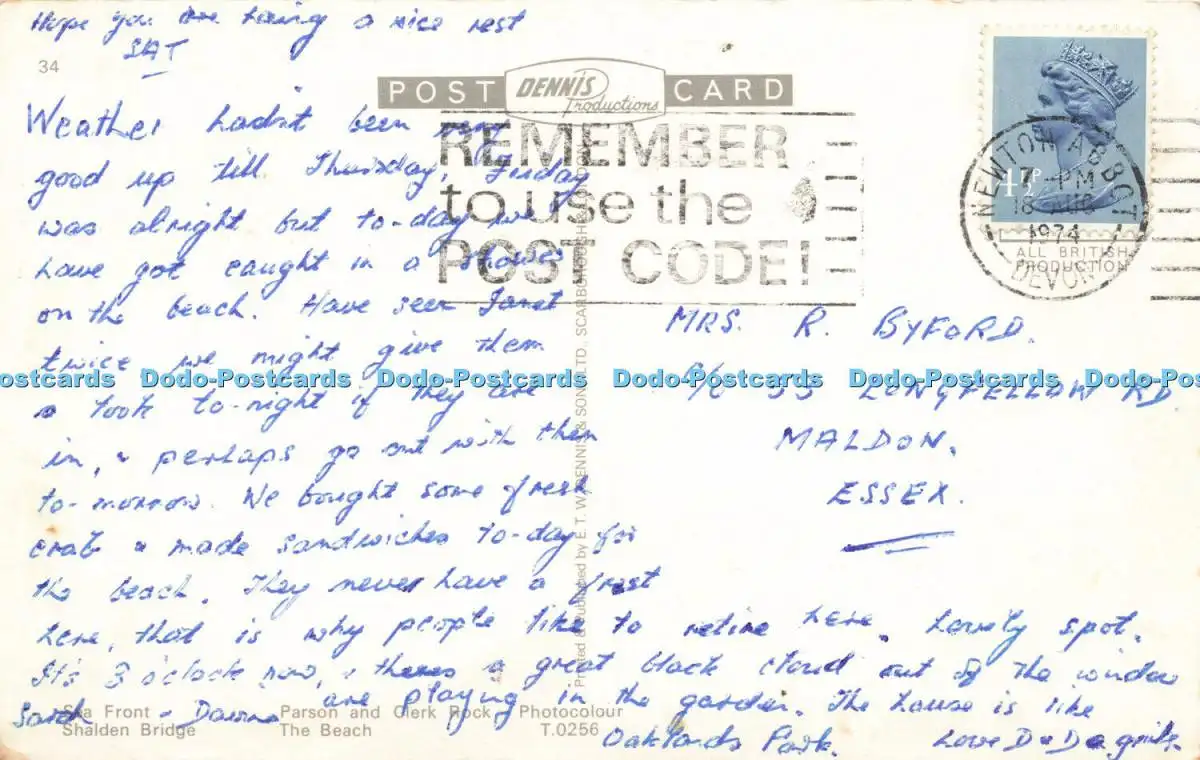 Hope you are having a nice rest
SAT
34
POST DENNIS Productions CARD
REMEMBER
to use the
POST CODE!
NEWTON ABBOT
7 - PM
18 AUG
1974
DEVON
4½P
ALL BRITISH
PRODUCTION
Weather hadn't been very
good up till Thursday, Friday
was alright but to-day we
have got caught in a shower
on the beach. Have seen Janet
twice we might give them
a look to-night if they are
in, & perhaps go out with them
to-morrow. We bought some fresh
crab & made sandwiches to-day for
the beach. They never have a frost
here, that is why people like to retire here. Lovely spot.
It's 3 o'clock now, & theres a great black cloud out of the window
Sarah & Dawn are playing in the garden. The house is like
Oaklands Park. Love D & D & girls.
MRS. R. BYFORD.
% 53 LONGFELLOW RD
MALDON.
ESSEX.
Printed & Published by E. T. W. DENNIS & SONS LTD., SCARBOROUGH
Dodo-Postcards Dodo-Postcards Dodo-Postcards Dodo-Postcards Dodo-Postcards
Sea Front Parson and Clerk Rock Photocolour
Shalden Bridge The Beach T.0256